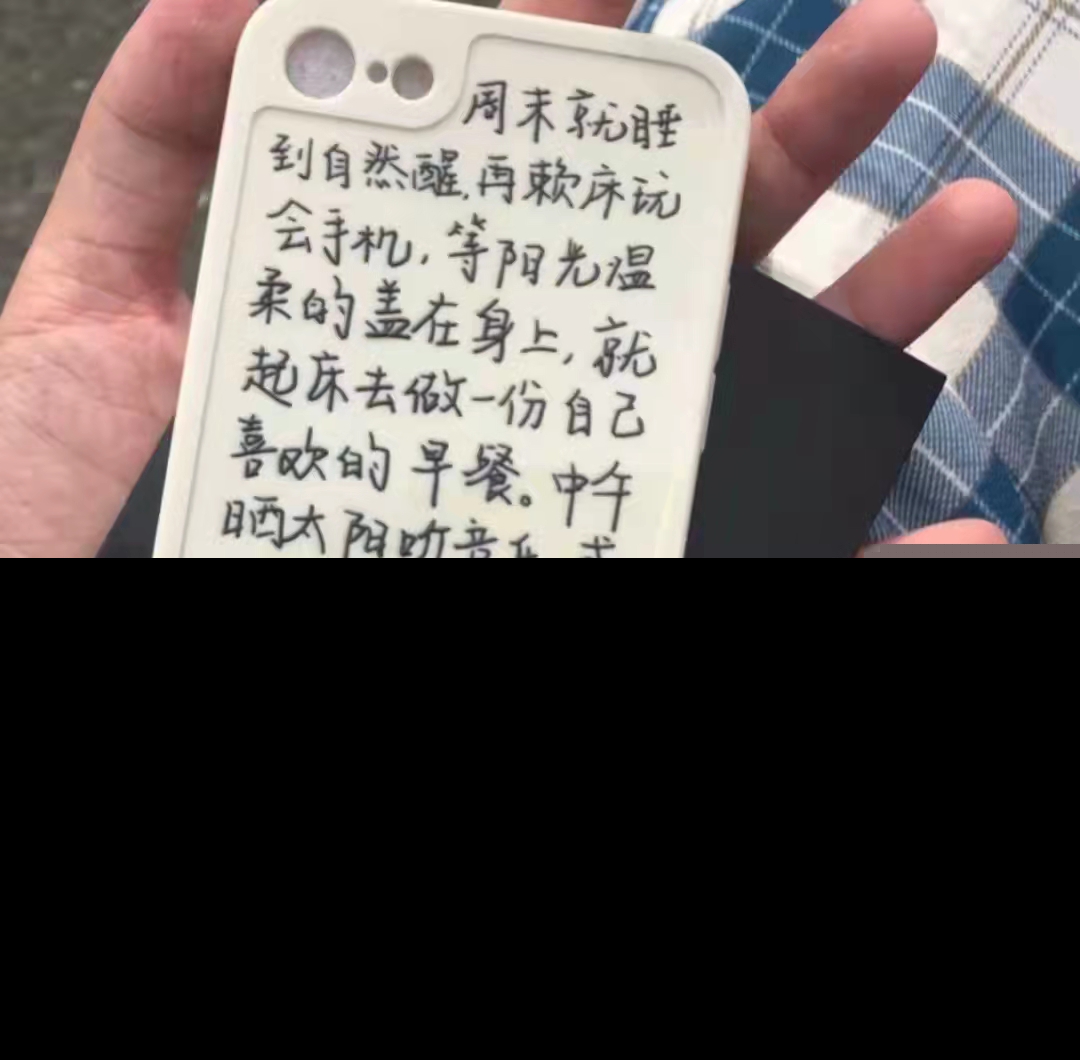 周末就睡
到自然醒,再赖床玩
会手机,等阳光温
柔的盖在身上,就
起床去做一份自己
喜欢的早餐。中午
晒太阳听音乐